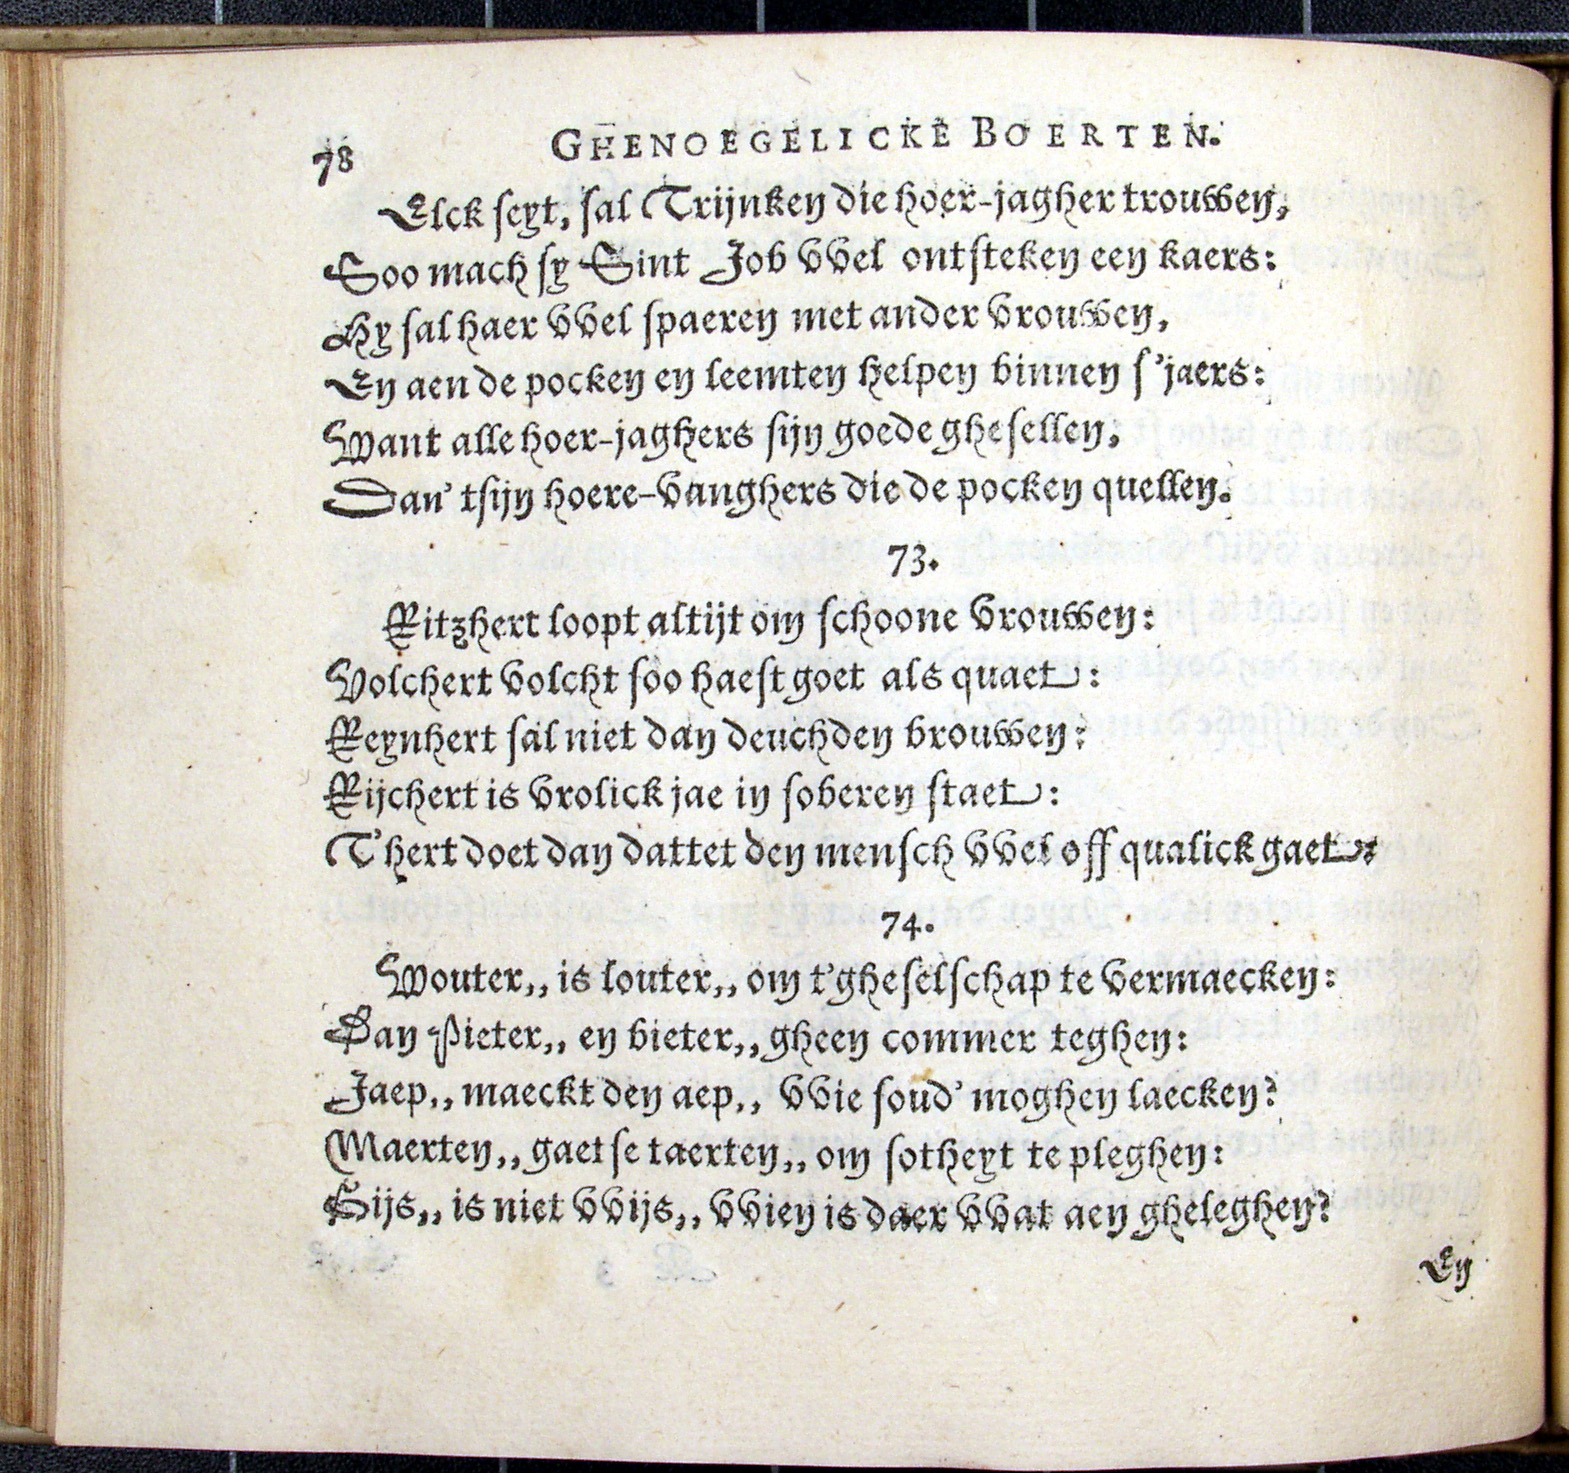 78
GHENOEGELICKE BOERTEN.
Elck seyt, sal Trijnken die hoer-jagher trouwen,
Soo mach sy Sint Job vvel ontsteken een kaers:
Hy sal haer vvel spaeren met ander vrouwen,
En aen de pocken en leemten helpen binnen s'jaers:
Want alle hoer-jaghers sijn goede ghesellen,
Dan' tsijn hoere-vanghers die de pocken quellen.
73.
Ritzhert loopt altijt om schoone vrouwen:
Volchert volcht soo haest goet als quaet:
Reynhert sal niet dan deuchden brouwen:
Rijchert is vrolick jae in soberen staet:
T'hert doet dan dattet den mensch vvel off qualick gaet:
74.
Wouter,, is louter,, om t'gheselschap te vermaecken:
Dan Pieter,, en bieter,, gheen commer teghen:
Jaep,, maeckt den aep,, vvie soud' moghen laecken?
Maerten,, gaet se taerten,, om sotheyt te pleghen:
Gijs,, is niet vvijs,, vvien is daer vvat aen gheleghen?
En